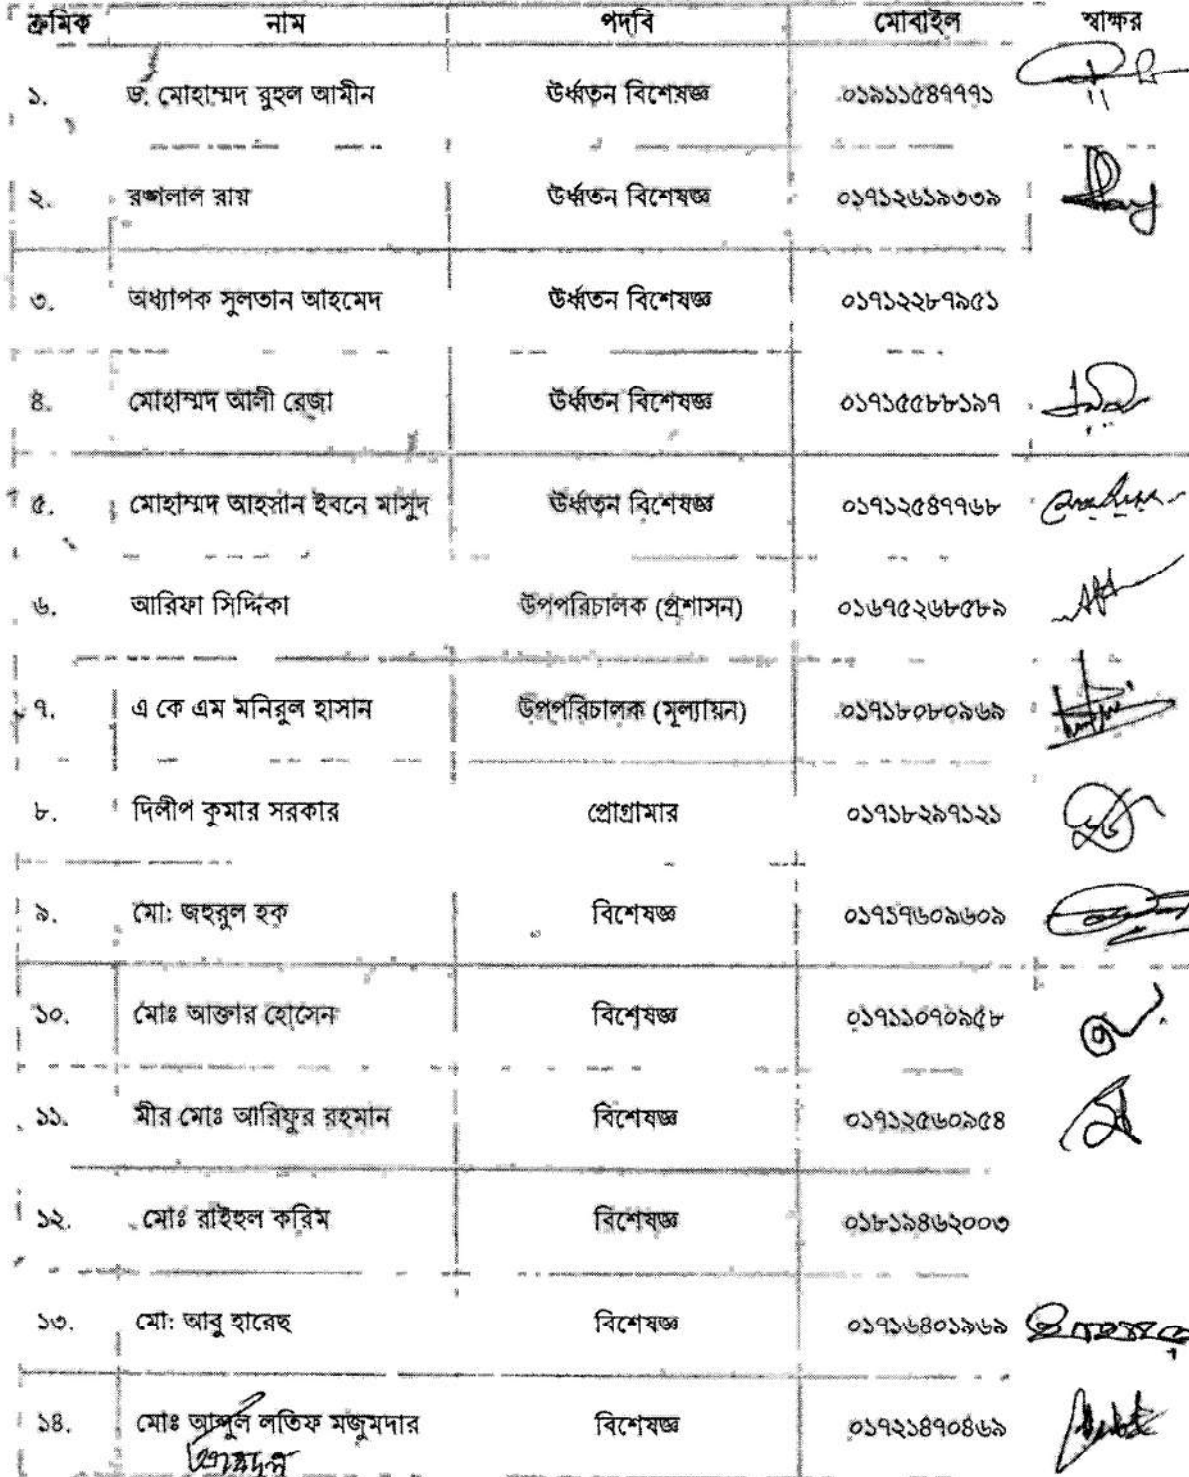 ক্রমিক নাম পদবি মোবাইল স্বাক্ষর
১. ড. মোহাম্মদ রুহুল আমীন উর্ধ্বতন বিশেষজ্ঞ ০১৯১১৫৪৭৭৭১
২. রঙ্গলাল রায় উর্ধ্বতন বিশেষজ্ঞ ০১৭১২৬১৯৩৩৯
৩. অধ্যাপক সুলতান আহমেদ উর্ধ্বতন বিশেষজ্ঞ ০১৭১২২৮৭৯৫১
৪. মোহাম্মদ আলী রেজা উর্ধ্বতন বিশেষজ্ঞ ০১৭১৫৫৮৮১৯৭
৫. মোহাম্মদ আহসান ইবনে মাসুদ উর্ধ্বতন বিশেষজ্ঞ ০১৭১২৫৪৭৭৬৮
৬. আরিফা সিদ্দিকা উপপরিচালক (প্রশাসন) ০১৬৭৫২৬৮৫৮৯
৭. এ কে এম মনিরুল হাসান উপপরিচালক (মূল্যায়ন) ০১৭১৮০৮০৯৬৯
৮. দিলীপ কুমার সরকার প্রোগ্রামার ০১৭১৮২৯৭১২১
৯. মো: জহুরুল হক বিশেষজ্ঞ ০১৭১৭৬০৯৬০৯
১০. মোঃ আক্তার হোসেন বিশেষজ্ঞ ০১৭১১০৭০৯৫৮
১১. মীর মোঃ আরিফুর রহমান বিশেষজ্ঞ ০১৭১২৫৬০৯৫৪
১২. মোঃ রাইহুল করিম বিশেষজ্ঞ ০১৮১৯৪৬২০০৩
১৩. মো: আবু হারেছ বিশেষজ্ঞ ০১৭১৬৪০১৯৬৯
১৪. মোঃ লতিফ মজুমদার বিশেষজ্ঞ ০১৭২১৪৭০৪৬৯